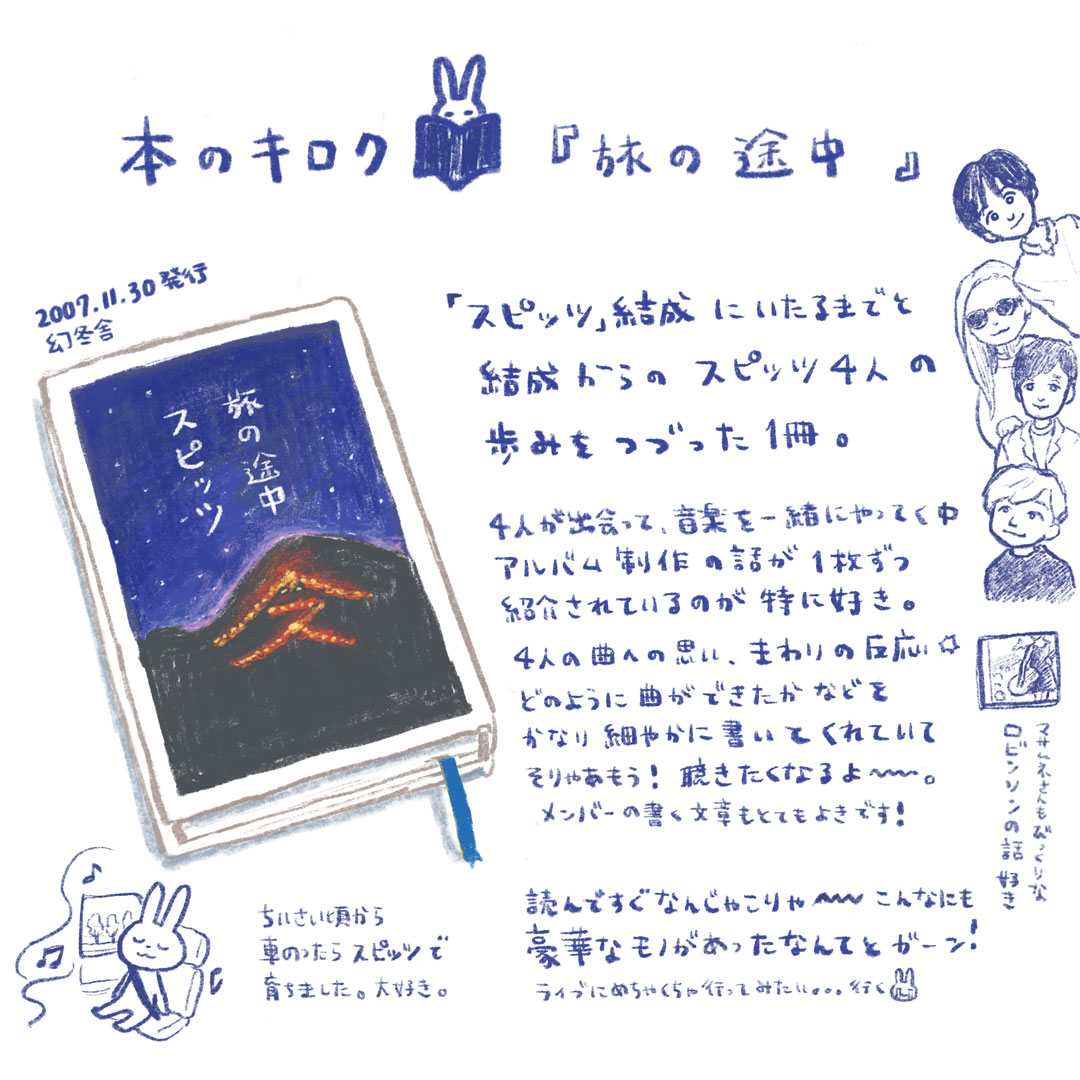 本のキロク『旅の途中』
2007.11.30発行
幻冬舎
旅の途中
スピッツ
「スピッツ」結成にいたるまでと
結成からのスピッツ4人の
歩みをつづった1冊。
4人が出会って、音楽を一緒にやってく中
アルバム制作の話が1枚ずつ
紹介されているのが特に好き。
4人の曲への思い、まわりの反応☆
どのように曲ができたかなどを
かなり細やかに書いてくれていて
そりゃあもう!聴きたくなるよ〜〜。
メンバーの書く文章もとてもよきです!
マサムネさんもびっくりな
ロビンソンの話好き
ちいさい頃から
車のったらスピッツで
育ちました。大好き。
読んですぐなんじゃこりゃ〜〜こんなにも
豪華なモノがあったなんてとガーン!
ライブにめちゃくちゃ行ってみたい。。。行く